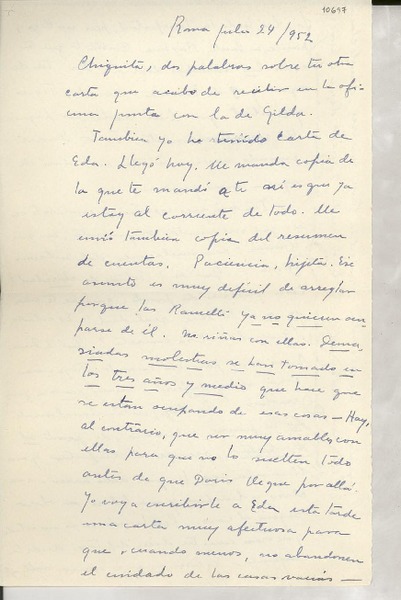 10697
Roma julio 24/952
Chiquita, dos palabras sobre tu otra
carta que acabo de recibir en la ofi
cina junto con la de Gilda.
Tambien yo he tenido carta de
Eda. Llegó hoy. Me manda copia de
la que te mandó a ti así es que ya
estoy al corriente de todo. Me
envió tambien copia del resumen
de cuentas. Paciencia, hijita. Ese
asunto es muy difícil de arreglar
porque las Ramelli ya no quieren ocu
parse de él. No riñas con ellas. Dema
siadas molestias se han tomado en
los tres años y medio que hace que
se estan ocupando de esas cosas — Hay,
al contrario, que ser muy amables con
ellas para que no lo suelten todo
antes de que Doris llegue por allá.
Yo voy a escribirle a Eda esta tarde
una carta muy afectuosa para
que, cuando menos, no abandonen
el cuidado de las casas vacías —